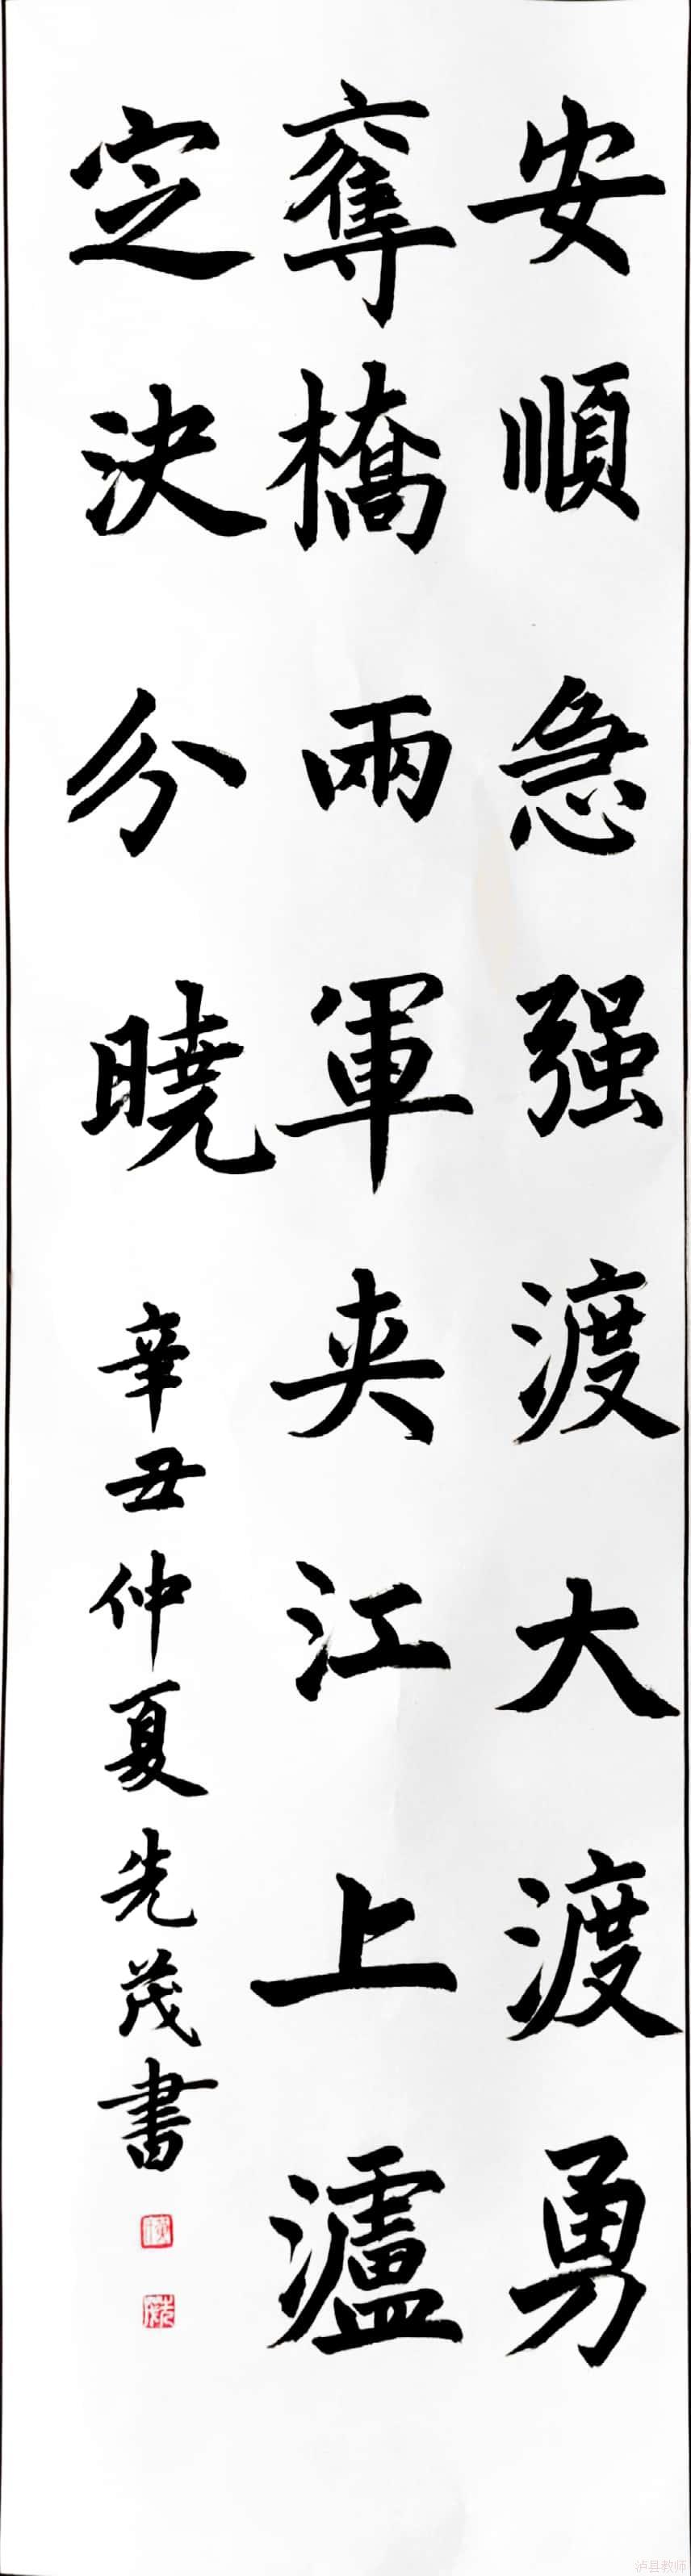 安順急强渡大渡勇
奪橋兩軍夾江上瀘
定决分曉
辛丑仲夏先茂書
泸县教师